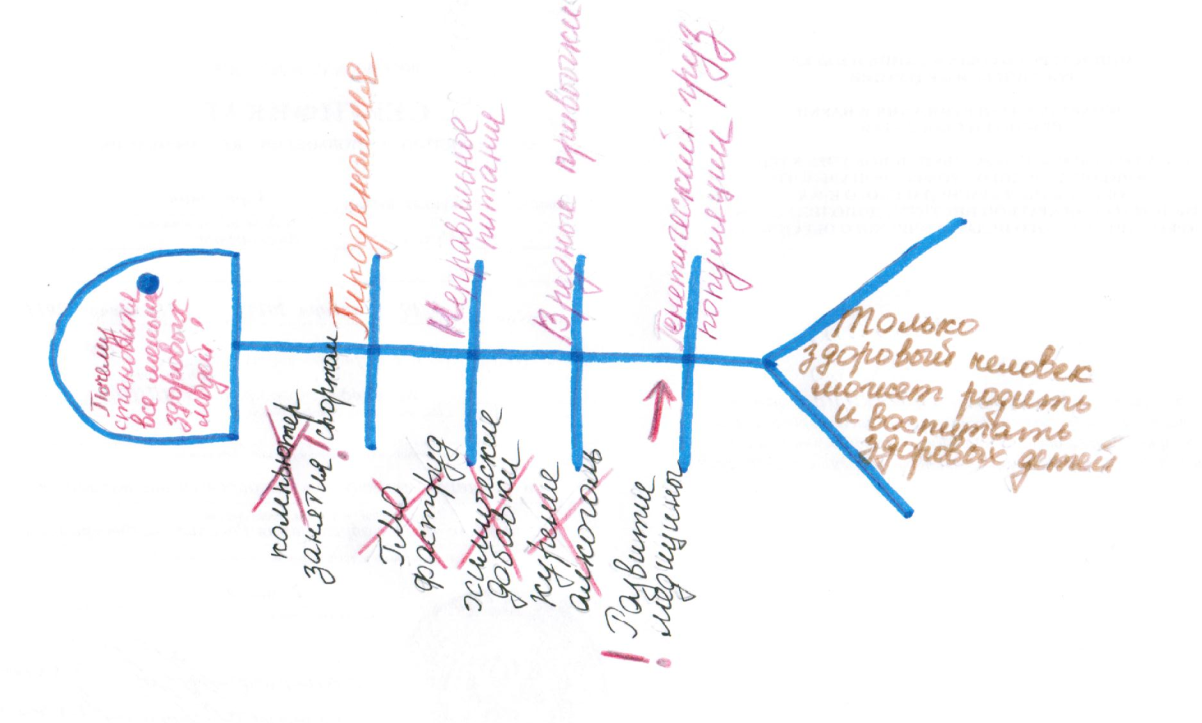 Почему
становится
все меньше
здоровых
людей?
Гиподинамия
Неправильное
питание
Вредные привычки
Генетический груз
популяции
компьютер
занятия спортом
!
ГМО
фастфуд
химические
добавки
курение
алкоголь
! Развитие
медицины
Только
здоровый человек
может родить
и воспитать
здоровых детей